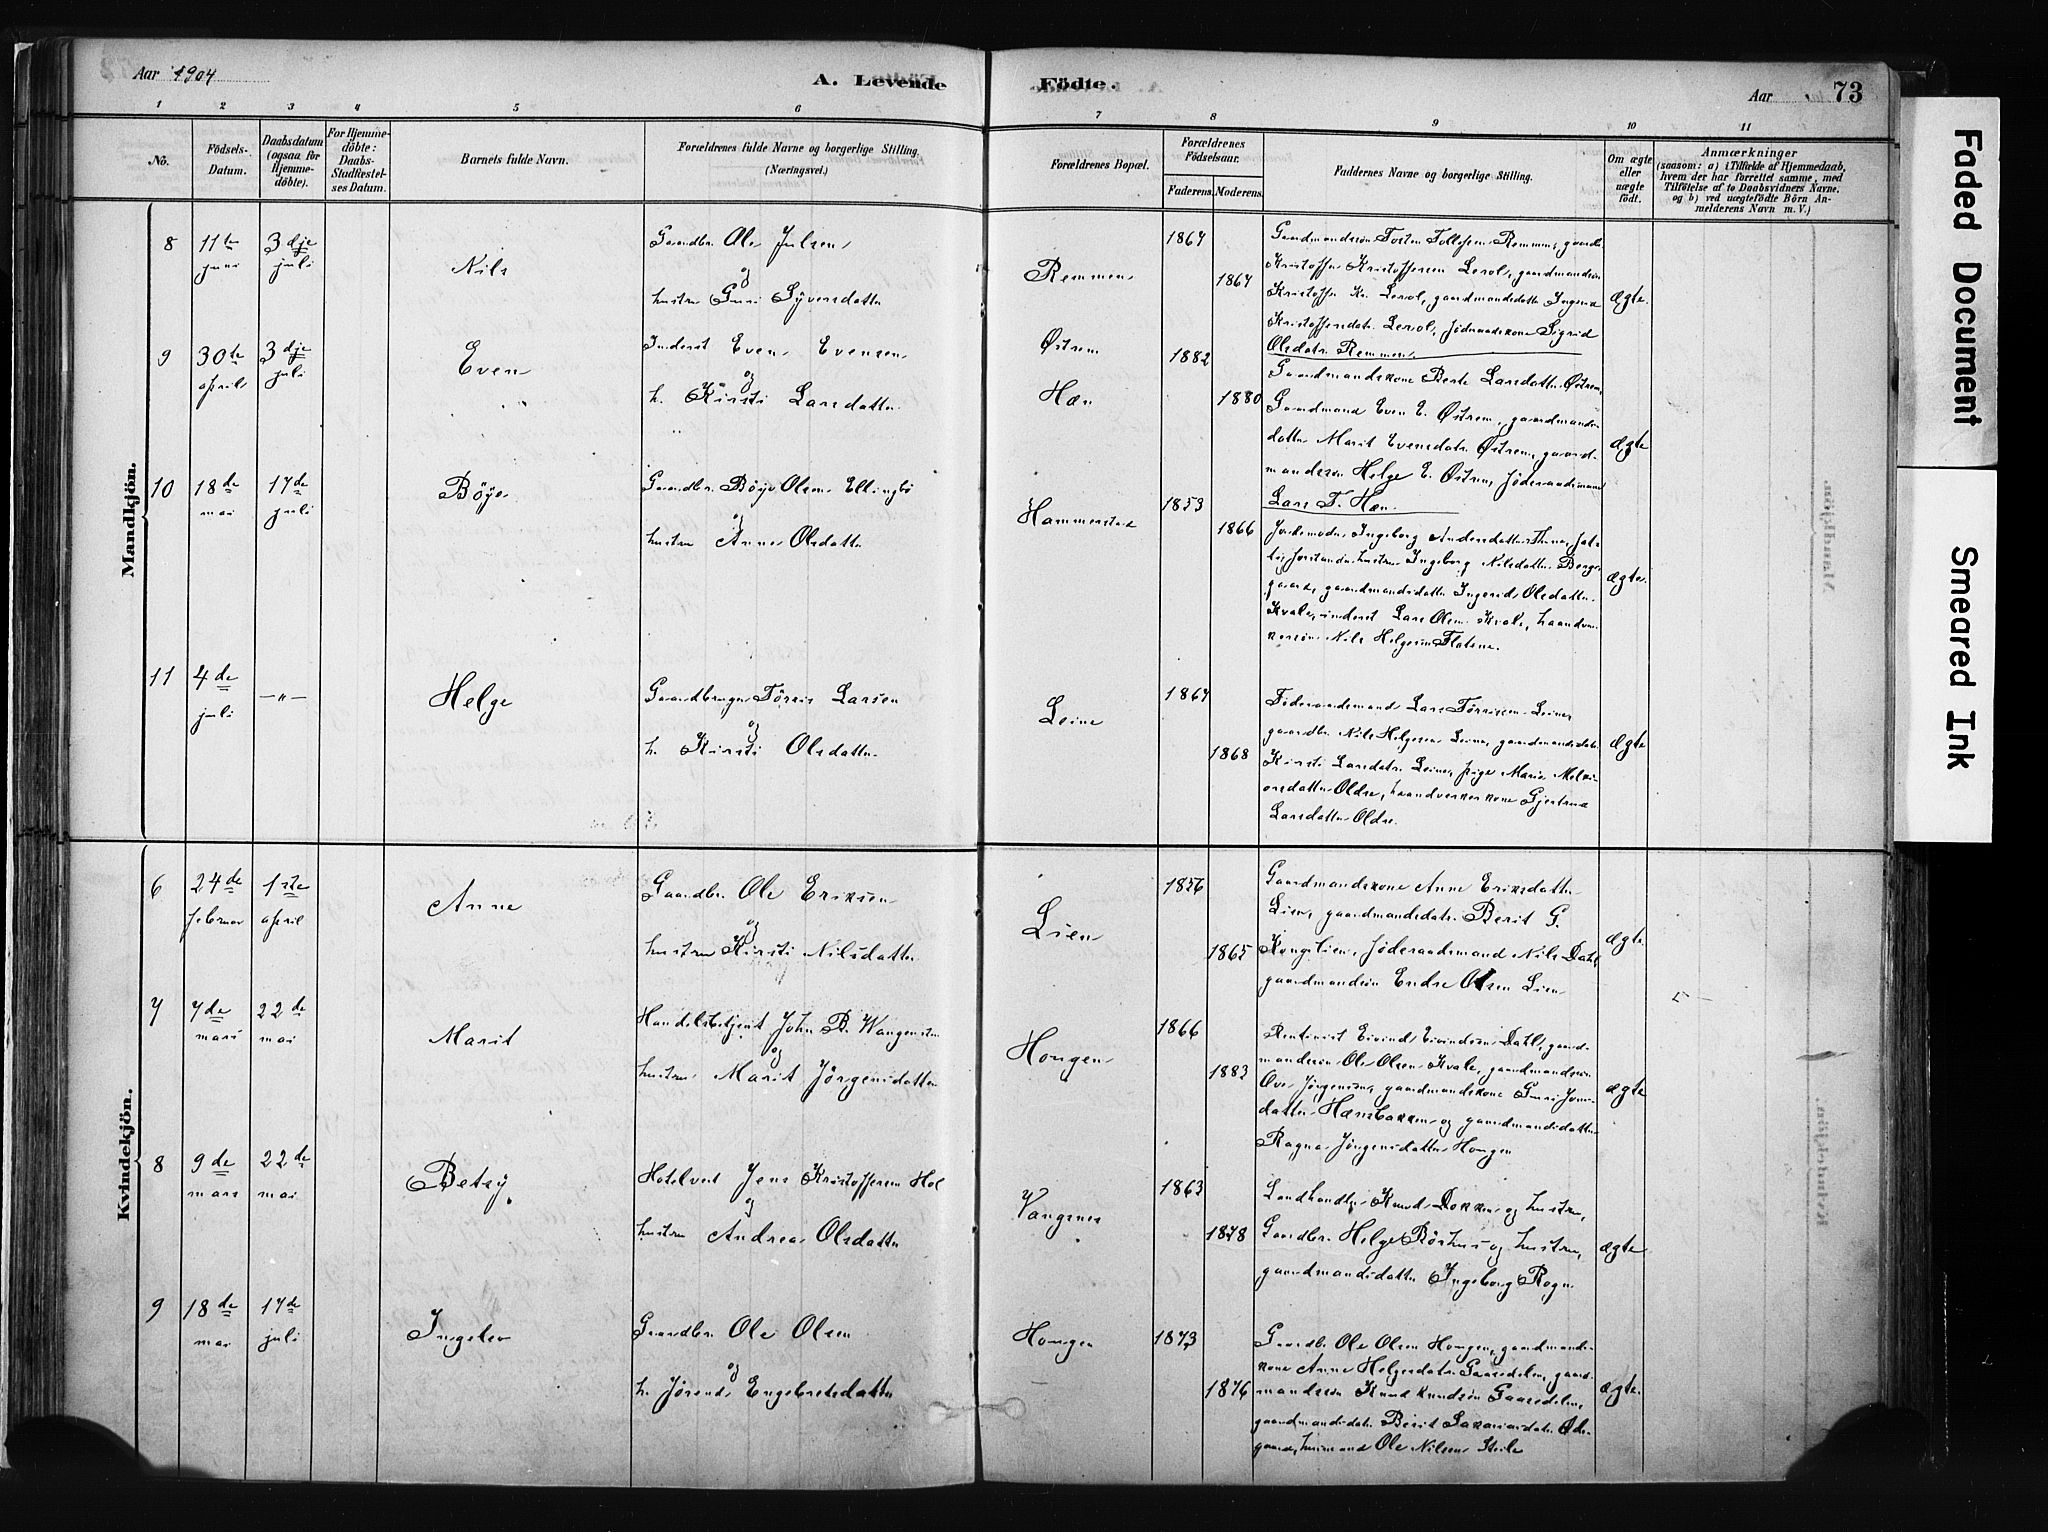 Aar 1904
A. Levende
Födte.
Aar
73
1 2 3 4 5 6 7 8 9 10 11
No.
Födsels-Datum.
Daabsdatum (ogsaa for Hjemmedöbte).
For Hjemmedöbte: Daabs-Stadfæstelses Datum.
Barnets fulde Navn.
Forældrenes fulde Navne og borgerlige Stilling. (Næringsvei.)
Forældrenes Bopæl.
Forældrenes Födselsaar.
Faderens. Moderens.
Faddernes Navne og borgerlige Stilling.
Om ægte eller uægte födt.
Anmærkninger
(saasom: a) i Tilfælde af Hjemmedaab,
hvem der har forrettet samme, med
Tilföielse af to Daabsvidners Navne.
og b) ved uægtefödte Börn An-
melderens Navn m. V.)
Mandkjön.
8 11te juni 3dje juli
Nils
Gaardbr. Ole Julsen
og
hustru Guri Syversdatter
Remmen
1864
1864
Gaardmandssøn Tosten Tollefsen Remmen, gaardbr.
Kristoffer Kristoffersen Lerol, gaardmandssøn
Kristoffer Kr. Lerol, gaardmandsdatter Ingerid
Kristoffersdatr. Lerol, föderaadskone Sigrid
Olsdatr. Remmen.
Ægte.
9 30te april 3dje juli
Even
Inderst Even Evensen
og
h. Kirsti Larsdatter
Østrem
Hæn
1882
1880
Gaardmandskone Berte Larsdatter Østrem,
Gaardmand Even E. Østrem, gaardmands-
datter Marit Evensdatr. Østrem, gaard-
mandssøn Helge E. Østrem, föderaadsmand
Lars T. Hæn.
Ægte
10 18de mai 17de juli
Böye
Gaardbr. Böye Olsen Ellingbö
og
hustru Anne Olsdatter
Hammerstad
1853
1866
Jordemoder Ingeborg Andersdatter Thune, fat-
tigforstanderhustru Ingeborg Nilsdatter Berge-
gaard, gaardmandsdatter Ingerid Olsdatter
Kvale, inderst Lars Olsen Kvale, haandver-
kersøn Nils Helgesen Flatene.
ægte.
11 4de juli —"—
Helge
Gaardbruger Törris Larsen
og
h. Kirsti Olsdatter
Leine
1864
1868
Föderaadsmand Lars Törrissen Leine,
gaardbr. Nils Helgesen Leine, gaardmandsdatr.
Kirsti Larsdatr. Leine, pige Marie Melki-
orsdatter Oldre, haandverkerkone Gjertrud
Larsdatter Oldre.
ægte
Kvindekjön.
6 24de februar 1ste april
Anne
Gaardbr. Ole Eriksen
og
hustru Kirsti Nilsdatter
Lien
1856
1865
Gaardmandskone Anne Eriksdatter
Lien, gaardmandsdatr. Berit G.
Kongslien, föderaadsmand Nils Dahl,
gaardmandssøn Endre Olsen Lien
Ægte.
7 7de mars 22de mai
Marit
Handelsbetjent John B. Wangensten
og
hustru Marit Jörgensdatter
Hougen
1866
1883
Rentenist Eivind Eivindsen Dahl, gaard-
mandssøn Ole Olsen Kvale, gaardmandssøn
Ove Jörgensen, gaardmandskone Guri Jons-
datter Hænsbakken og gaardmandsdatter
Ragna Jörgensdatter Hougen
ægte
8 9de mars 22de mai
Betsy
Hotelvert Jens Kristoffersen Hol
og
hustru Andrea Olsdatter
Vangsnes
1863
1878
Landhandler Knud Dokken og hustru,
Gaardbr. Helge Börhus og hustru,
gaardmandsdatter Ingeborg Rogn
ægte
9 18de mai 17de juli
Ingelev
Gaardbr. Ole Olsen
og
h. Jörend Engebretsdatter
Hougen
1873
1876
Gaardbr. Ole Olsen Hougen, gaardmands-
kone Anne Helgesdatr. Gaasedelen, gaard-
mandssøn Knud Knudsen Gaasedelen,
gaardmandsdatr. Berit Sakariasdatr. Øde-
gaard, husmand Ole Nilsen Steile
ægte.
Faded Document
Smeared Ink